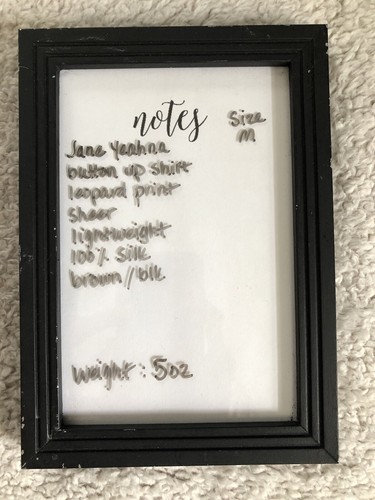 notes
Size
M
Jane Yeahna
button up shirt
leopard print
Sheer
lightweight
100% Silk
brown//blk
Weight: 5oz